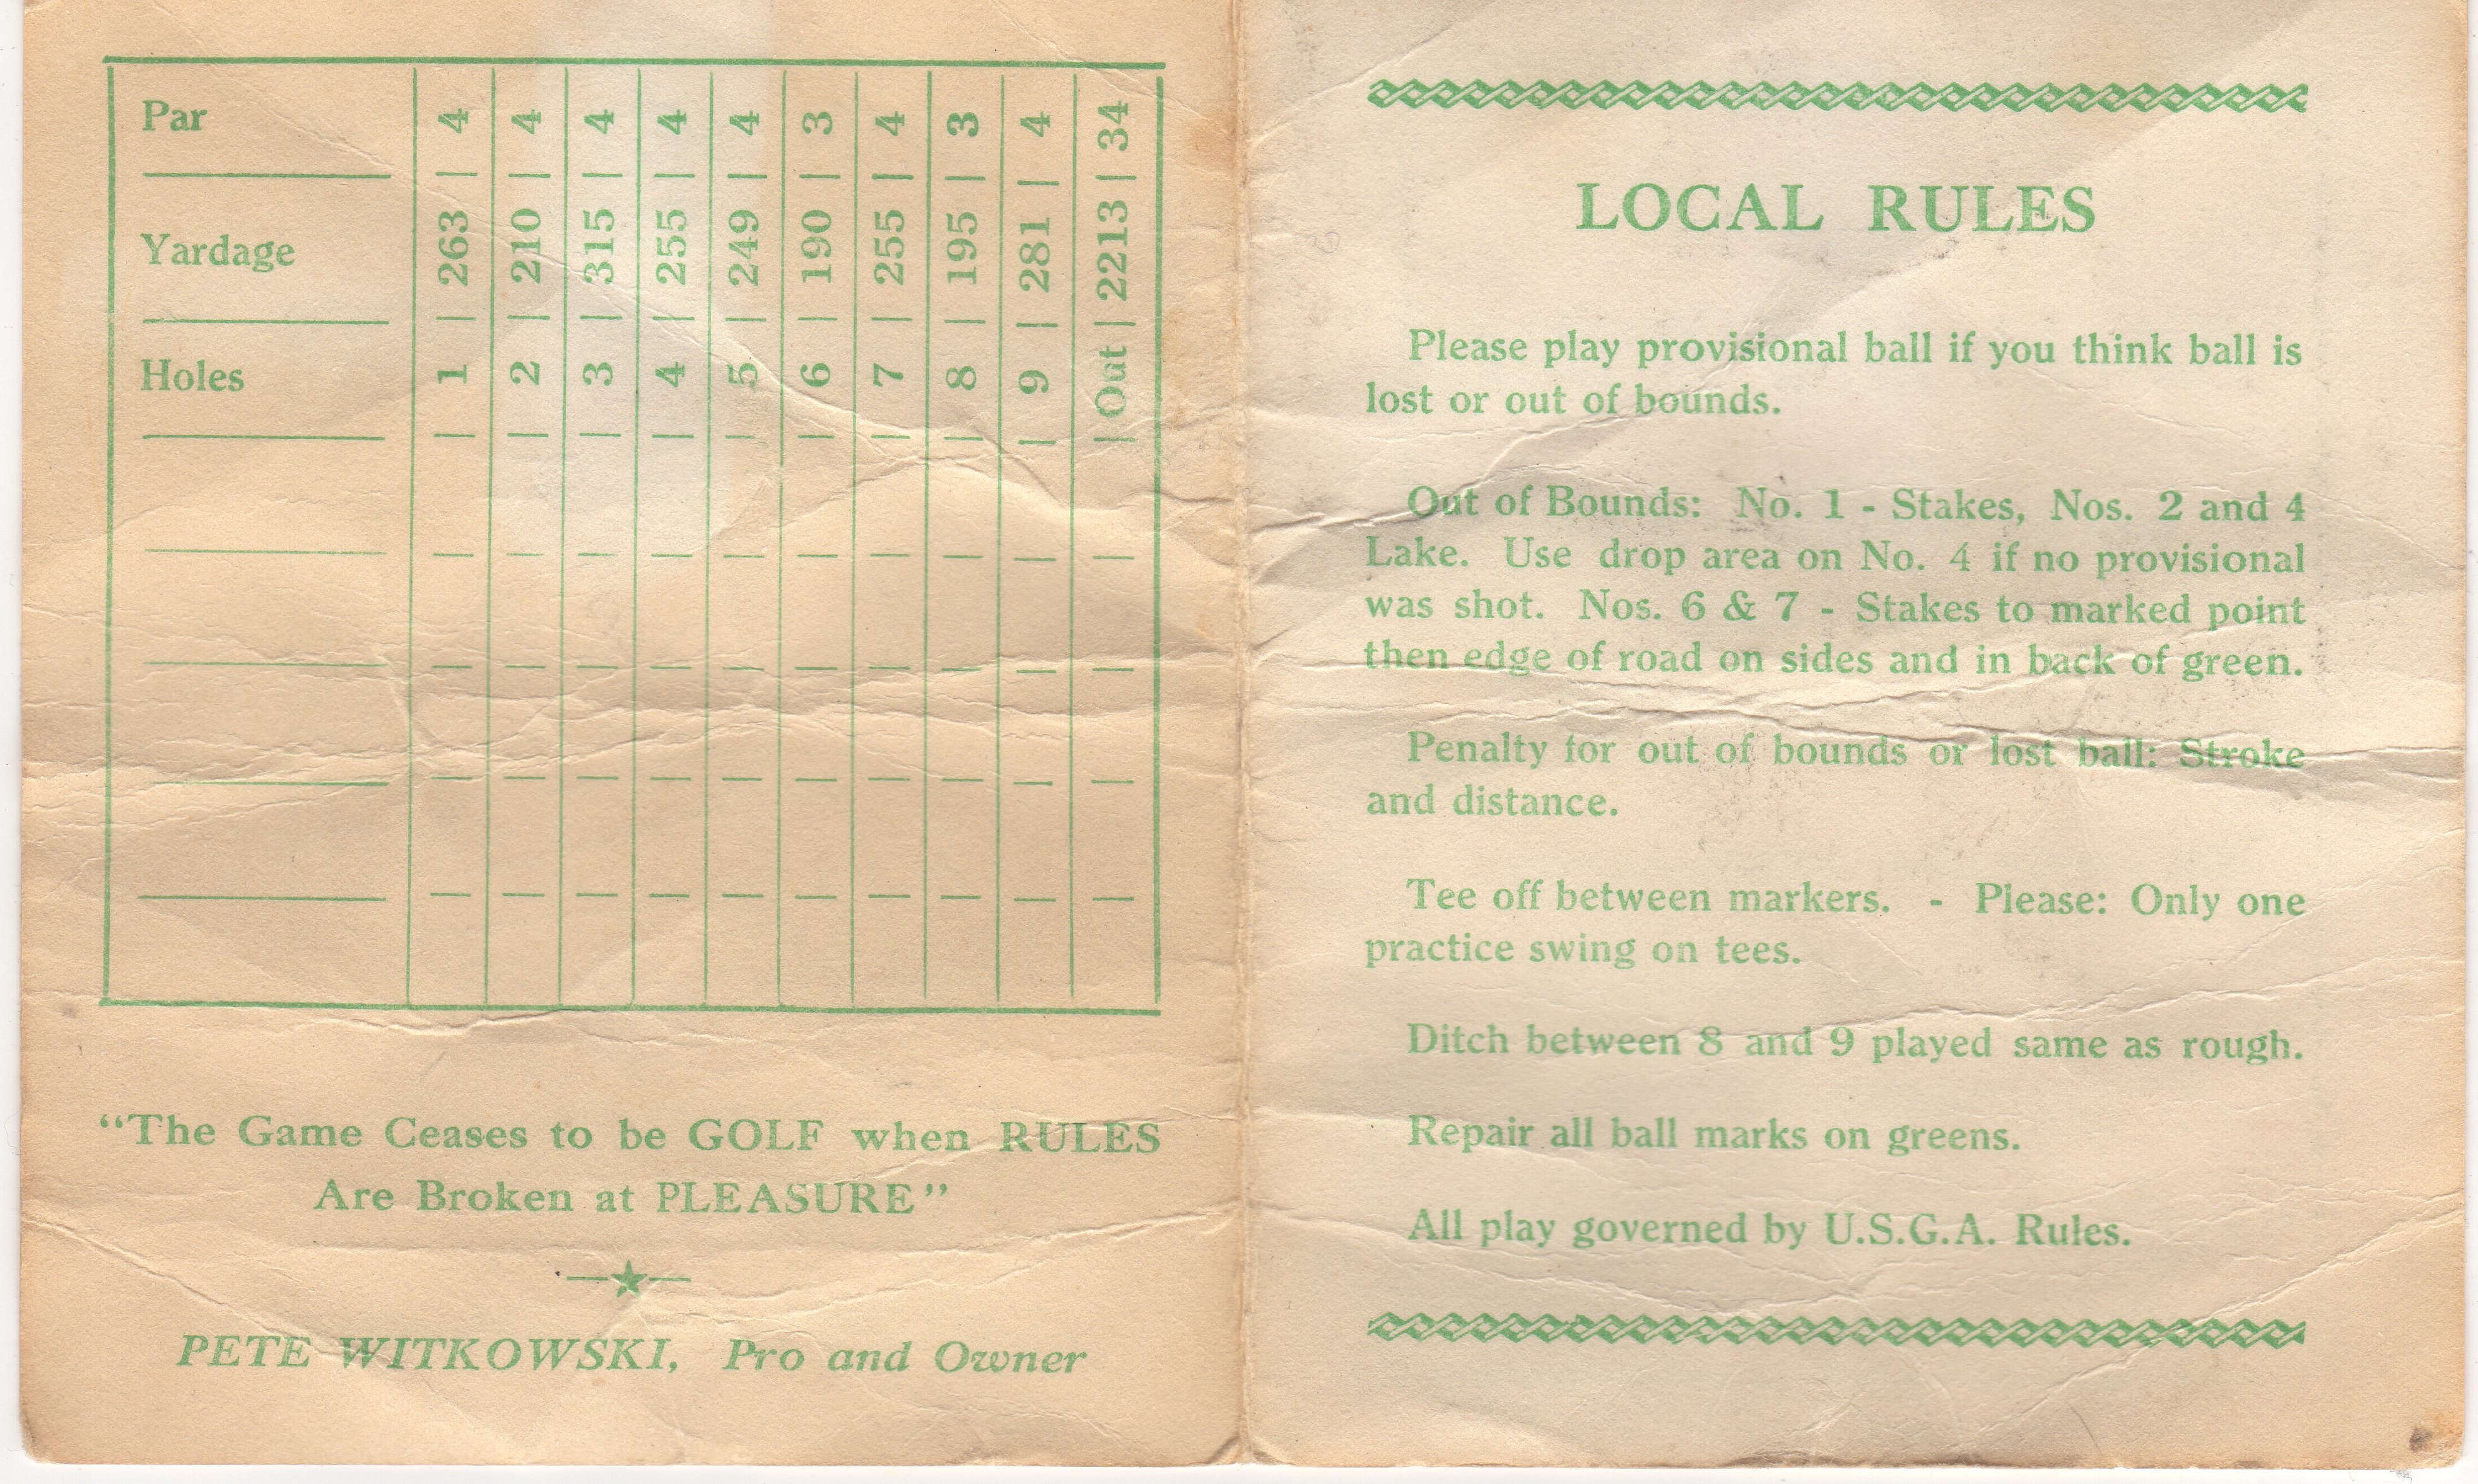 Par | 4 | 4 | 4 | 4 | 4 | 3 | 4 | 3 | 4 | 34
Yardage | 263 | 210 | 315 | 255 | 249 | 190 | 255 | 195 | 281 | 2213
Holes | 1 | 2 | 3 | 4 | 5 | 6 | 7 | 8 | 9 | Out
"The Game Ceases to be GOLF when RULES
Are Broken at PLEASURE"
PETE WITKOWSKI, Pro and Owner
LOCAL RULES
Please play provisional ball if you think ball is
lost or out of bounds.
Out of Bounds: No. 1 - Stakes, Nos. 2 and 4
Lake. Use drop area on No. 4 if no provisional
was shot. Nos. 6 & 7 - Stakes to marked point
then edge of road on sides and in back of green.
Penalty for out of bounds or lost ball: Stroke
and distance.
Tee off between markers. - Please: Only one
practice swing on tees.
Ditch between 8 and 9 played same as rough.
Repair all ball marks on greens.
All play governed by U.S.G.A. Rules.